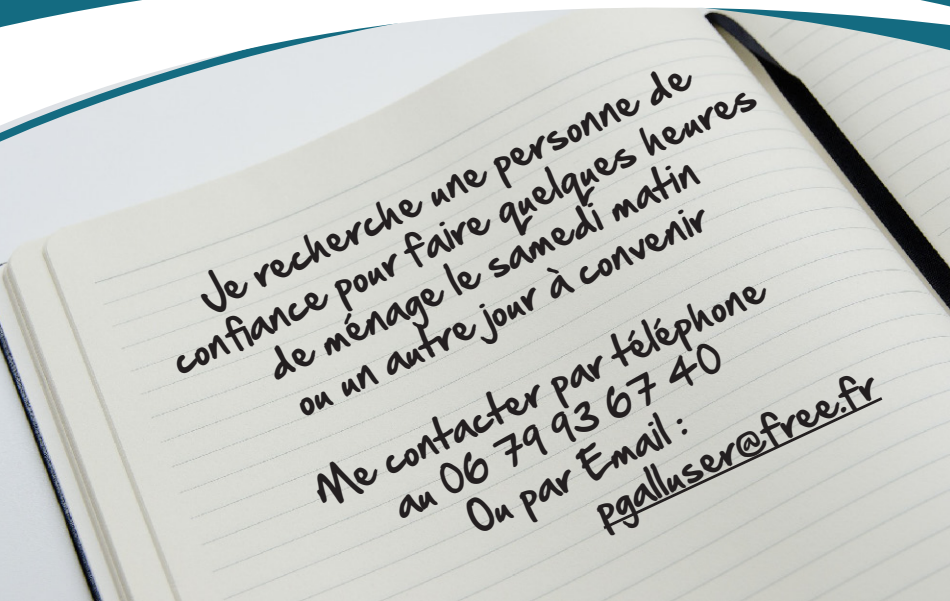 Je recherche une personne de
confiance pour faire quelques heures
de ménage le samedi matin
ou un autre jour à convenir
Me contacter par téléphone
au 06 79 93 67 40
Ou par Email :
pgalluser@free.fr